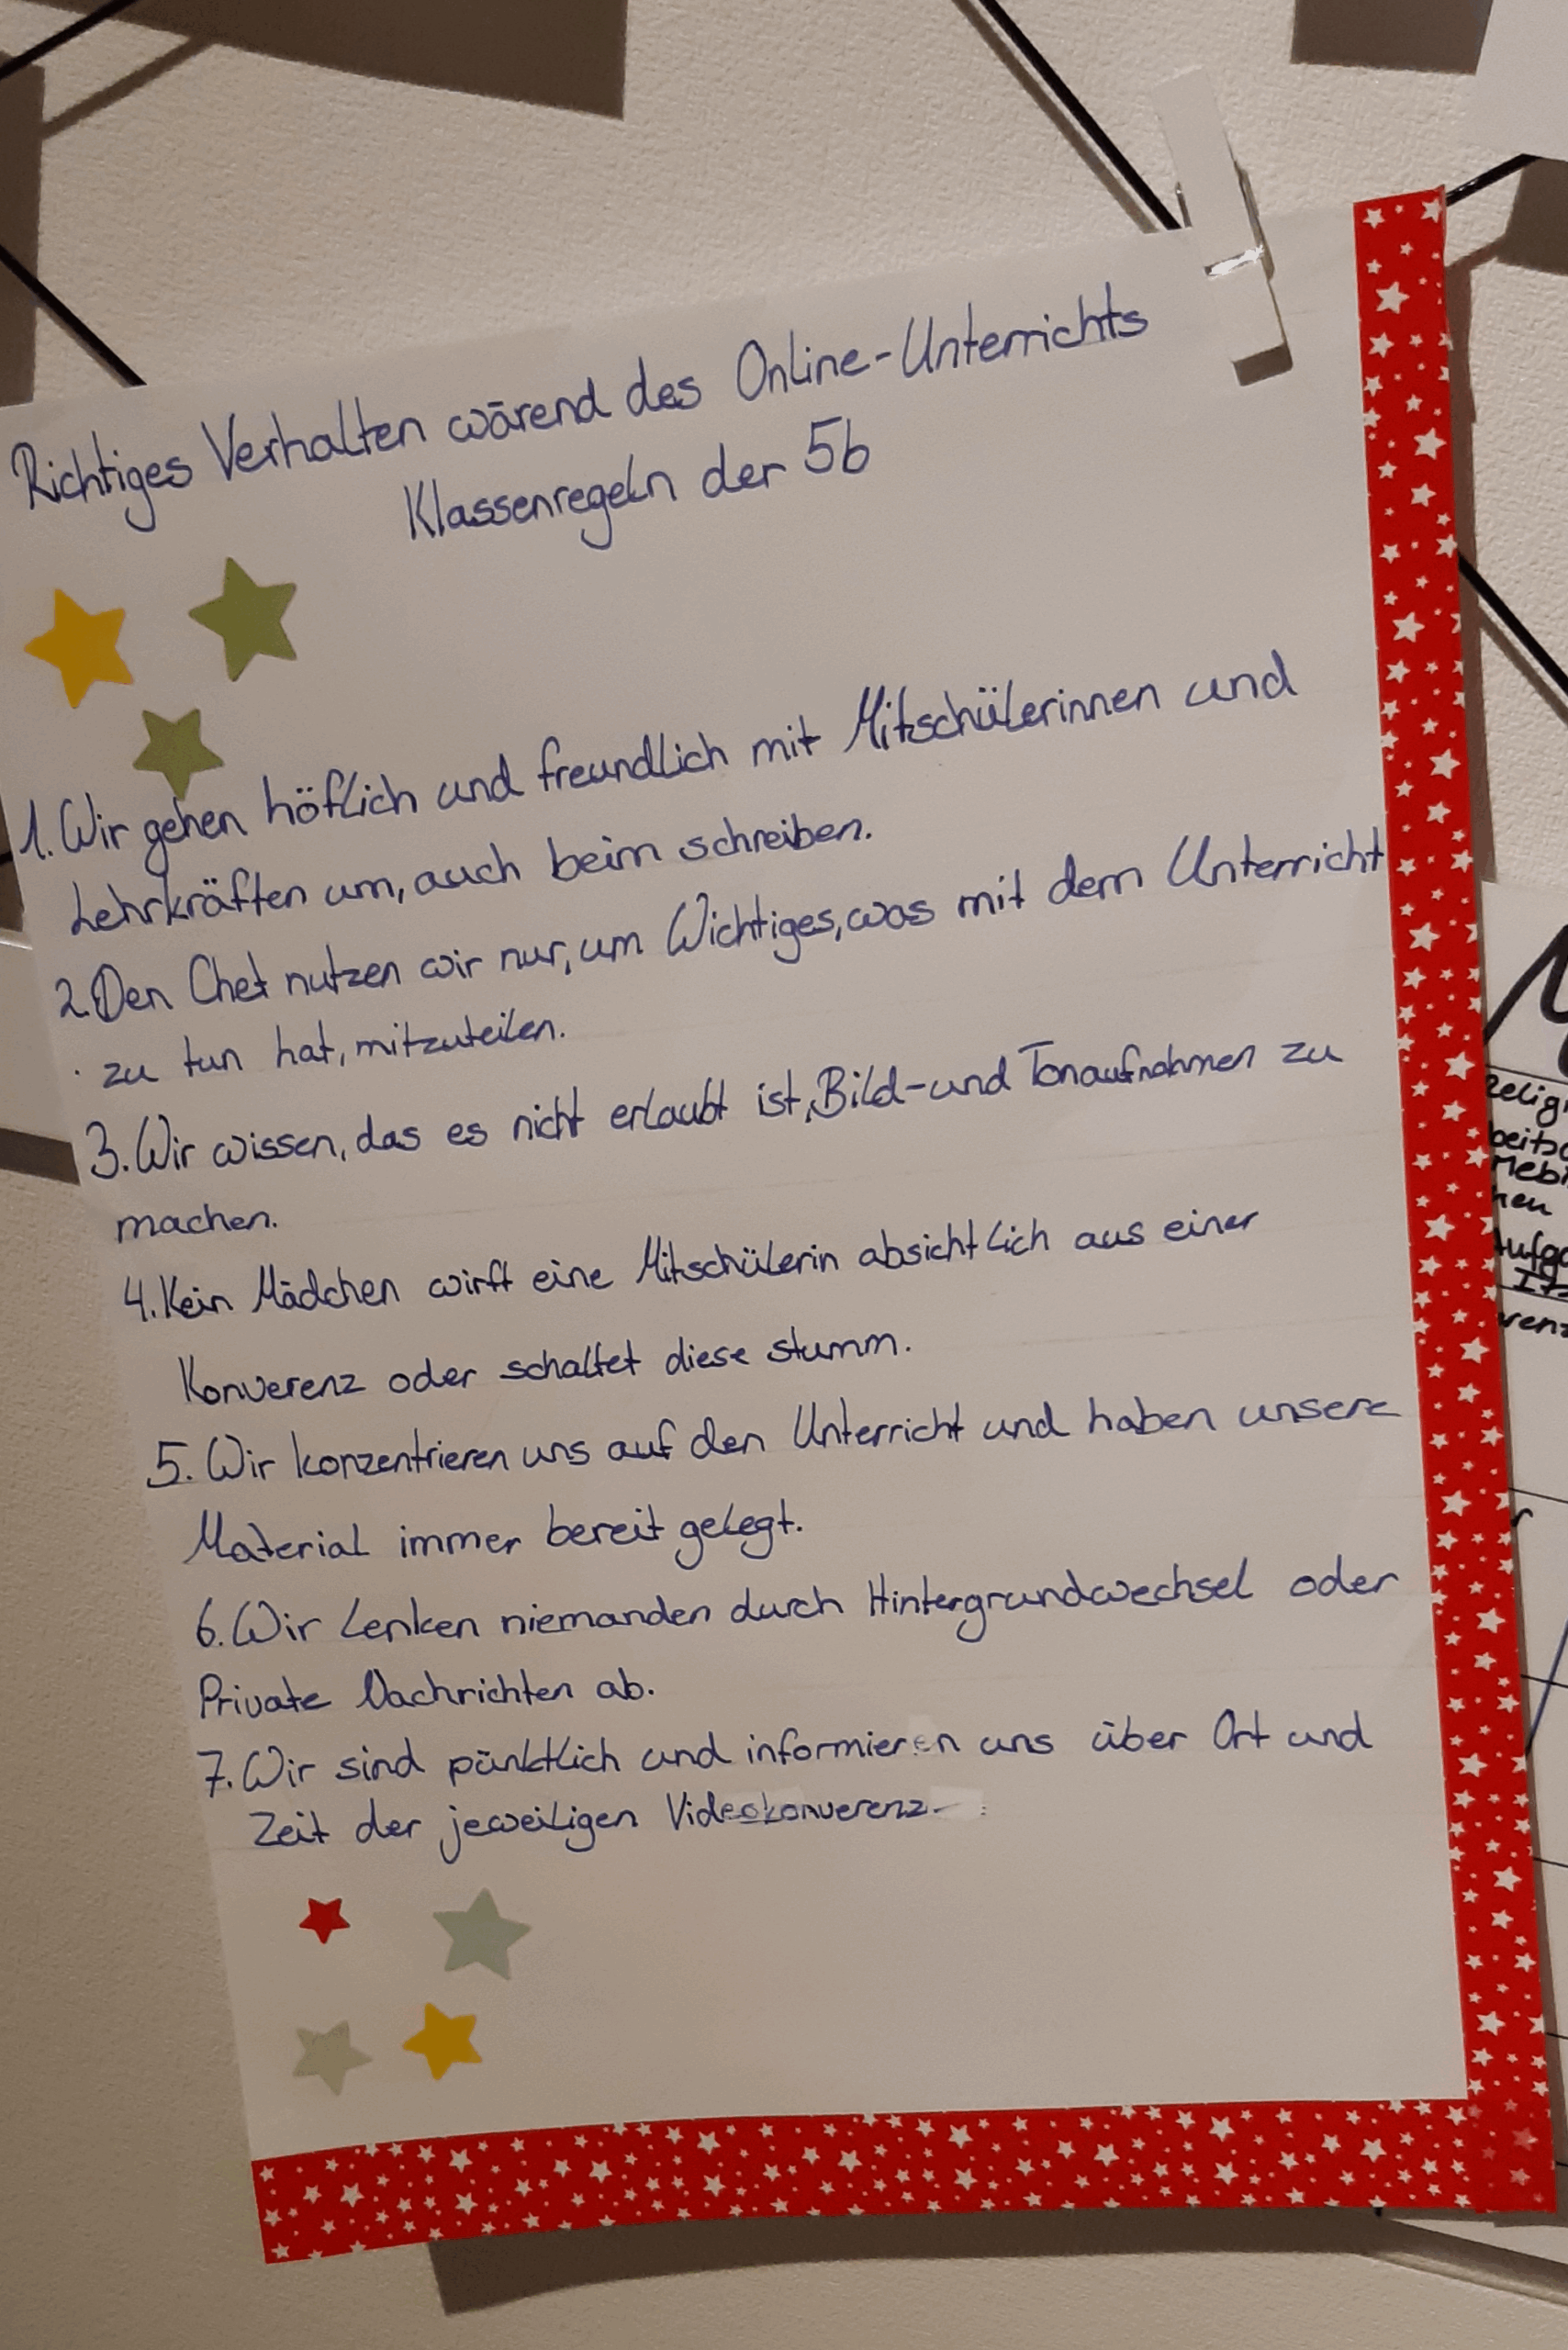 Richtiges Verhalten wärend des Online-Unterrichts
Klassenregeln der 5b
1. Wir gehen höflich und freundlich mit Mitschülerinnen und
Lehrkräften um, auch beim schreiben.
2. Den Chet nutzen wir nur, um Wichtiges, was mit dem Unterricht
zu tun hat, mitzuteilen.
3. Wir wissen, das es nicht erlaubt ist, Bild- und Tonaufnahmen zu
machen.
4. Kein Mädchen wirft eine Mitschülerin absichtlich aus einer
Konverenz oder schaltet diese stumm.
5. Wir konzentrieren uns auf den Unterricht und haben unsere
Material immer bereit gelegt.
6. Wir lenken niemanden durch Hintergrundwechsel oder
Private Nachrichten ab.
7. Wir sind pünktlich und informieren uns über Ort und
Zeit der jeweiligen Videokonverenz.